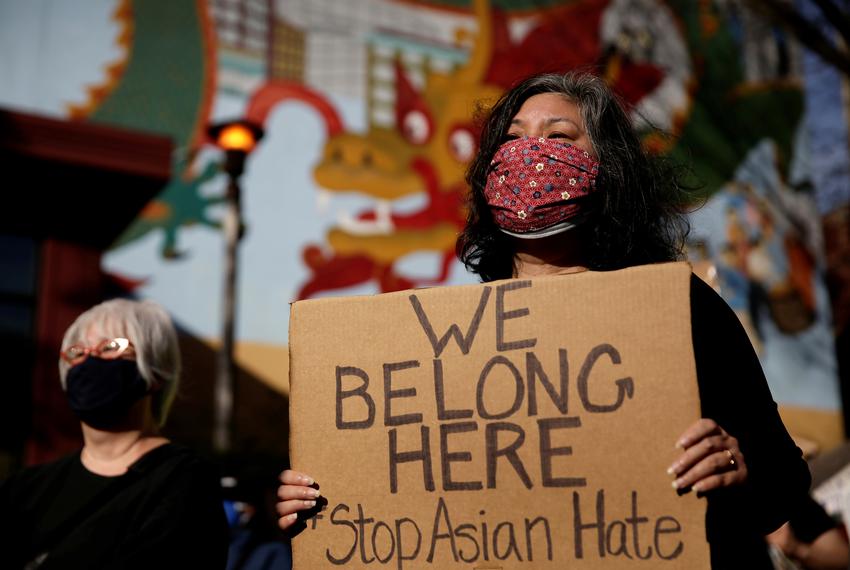 WE
BELONG
HERE
#Stop Asian Hate